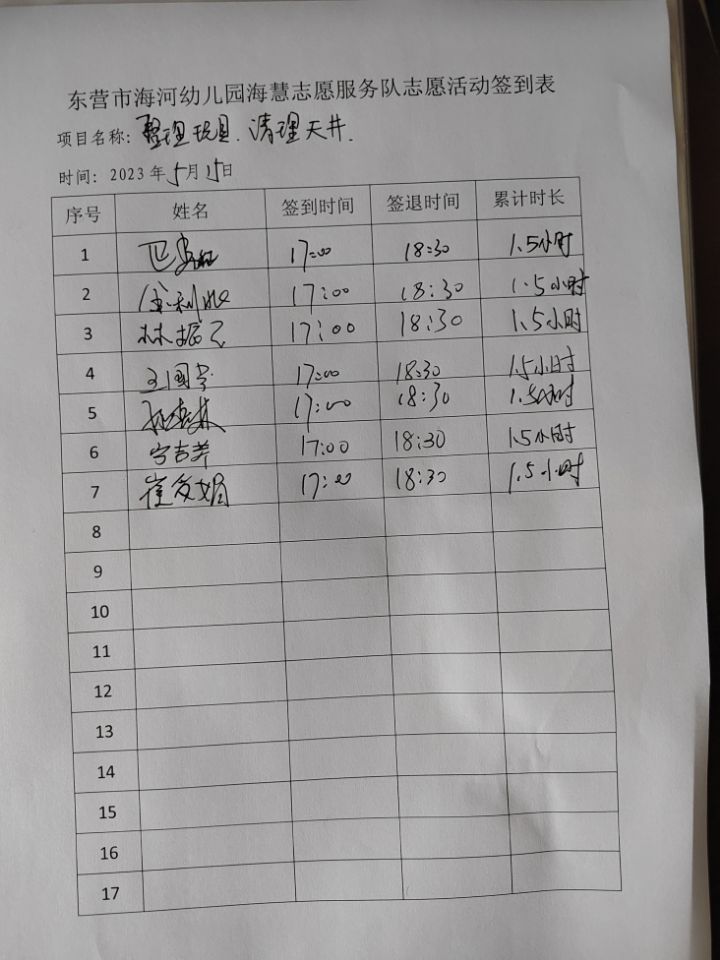 东营市海河幼儿园海慧志愿服务队志愿活动签到表
项目名称: 整理玩具、清理天井.
时间: 2023年5月15日
序号 姓名 签到时间 签退时间 累计时长
1 17:00 18:30 1.5小时
2 17:00 18:30 1.5小时
3 林振飞 17:00 18:30 1.5小时
4 王国芳 17:00 18:30 1.5小时
5 17:00 18:30 1.5小时
6 宁吉萍 17:00 18:30 1.5小时
7 崔爱娟 17:00 18:30 1.5小时
8
9
10
11
12
13
14
15
16
17